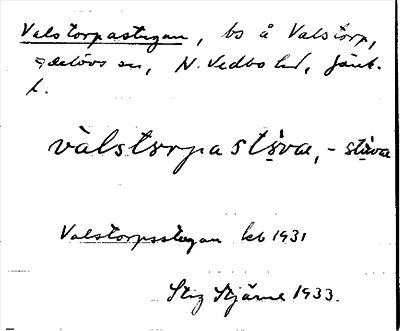 Valstorpastugan, bs å Valstorp,
Adelövs sn, N. Vedbo hd, Jönk.
l.
vàlstorpastùvaɩ, - stùvaɩ
Valstorpsstugan kb 1931
Stig Stjärne 1933.